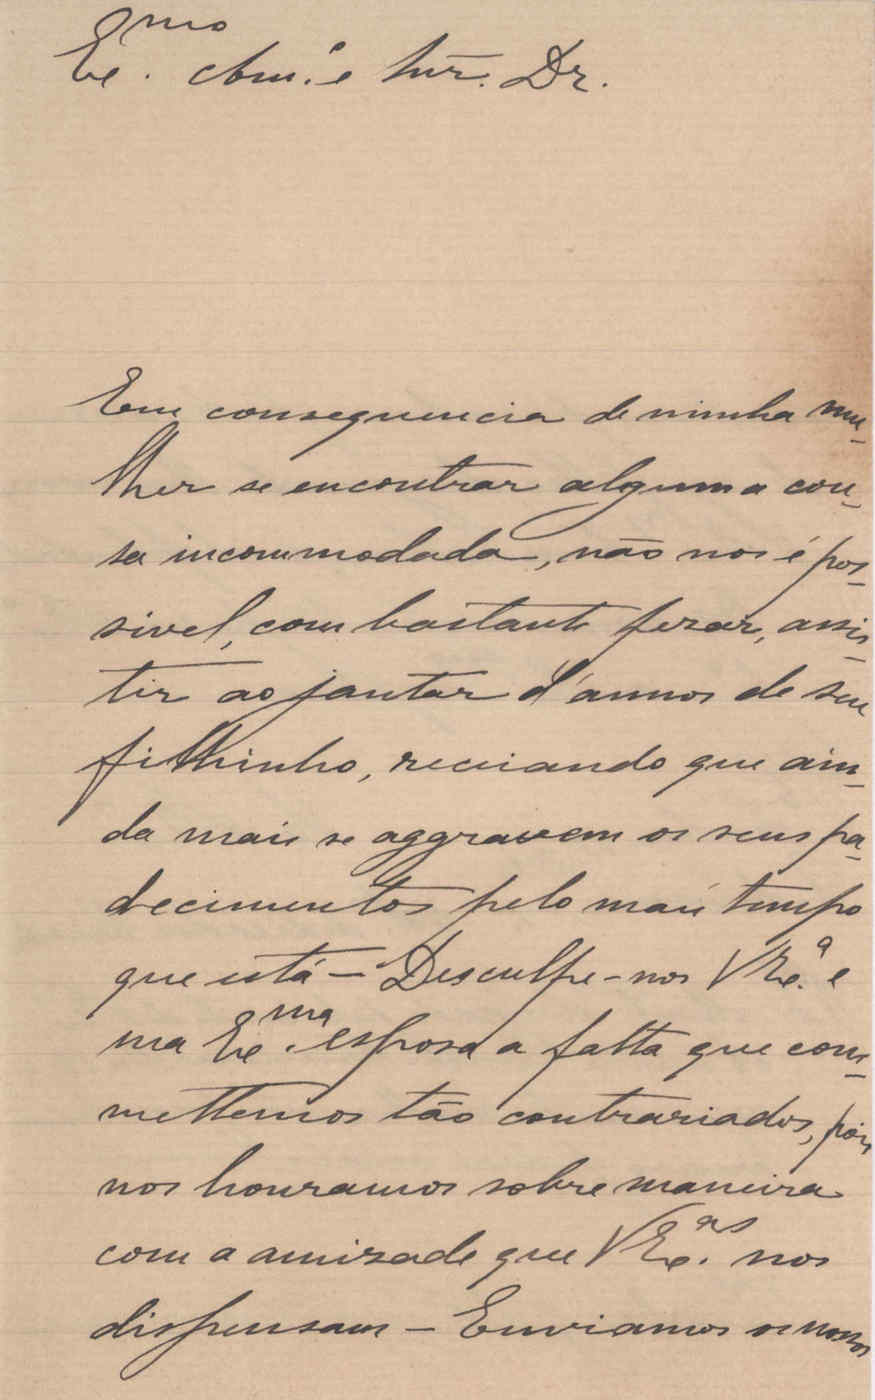 Exmo. Am.º e Snr. Dr.
Em consequencia de minha mu-
lher se encontrar alguma cou-
sa incommodada, não nos é pos-
sivel, com bastante pezar, assis-
tir ao jantar d'annos de seu
filhinho, receiando que ain-
da mais se aggravem os seus pa-
decimentos pelo mau tempo
que está – Desculpe-nos VExª. e
sua Exma. esposa a falta que com-
mettemos tão contrariados, pois
nos honramos sobremaneira
com a amizade que VExas. nos
dispensam – Enviamos os nossos